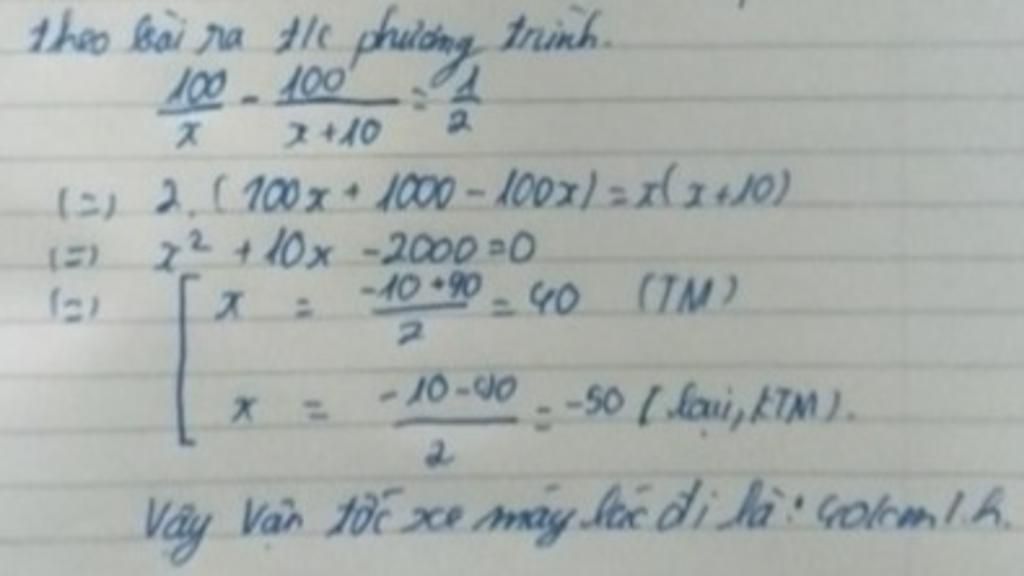 theo bài ra t/c phương trình.
100/x - 100/(x+10) = 1/2
(=) 2.(100x + 1000 - 100x) = x(x+10)
(=) x² + 10x - 2000 = 0
(=) [ x = (-10+90)/2 = 40 (TM)
x = (-10-90)/2 = -50 (loại, KTM).
Vậy vận tốc xe máy lúc đi là: 40km/h.